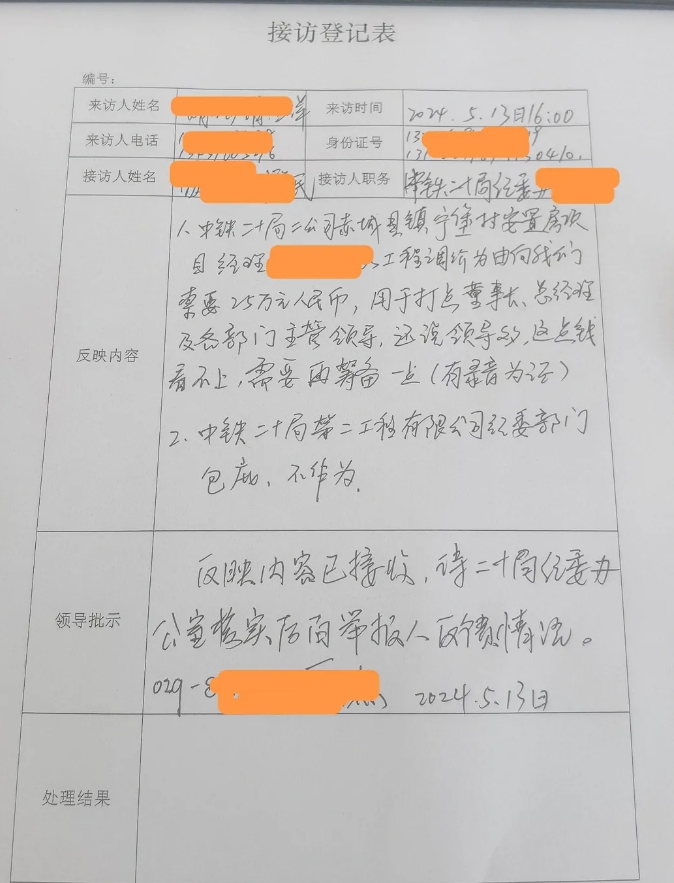 接访登记表
编号：
来访人姓名 来访时间 2024.5.13日16:00
来访人电话 身份证号
接访人姓名 接访人职务 中铁二十局纪委办
反映内容
1、中铁二十局二公司赤城县镇宁堡村安置房项
目经理 以工程调价为由向我们
索要25万元人民币，用于打点董事长、总经理
及各部门主管领导，还说领导的，这点钱
看不上，需要再筹备一点（有录音为证）
2、中铁二十局第二工程有限公司纪委部门
包庇、不作为。
领导批示
反映内容已接收，待二十局纪委办
公室核实后向举报人反馈情况。
029- 2024.5.13日
处理结果